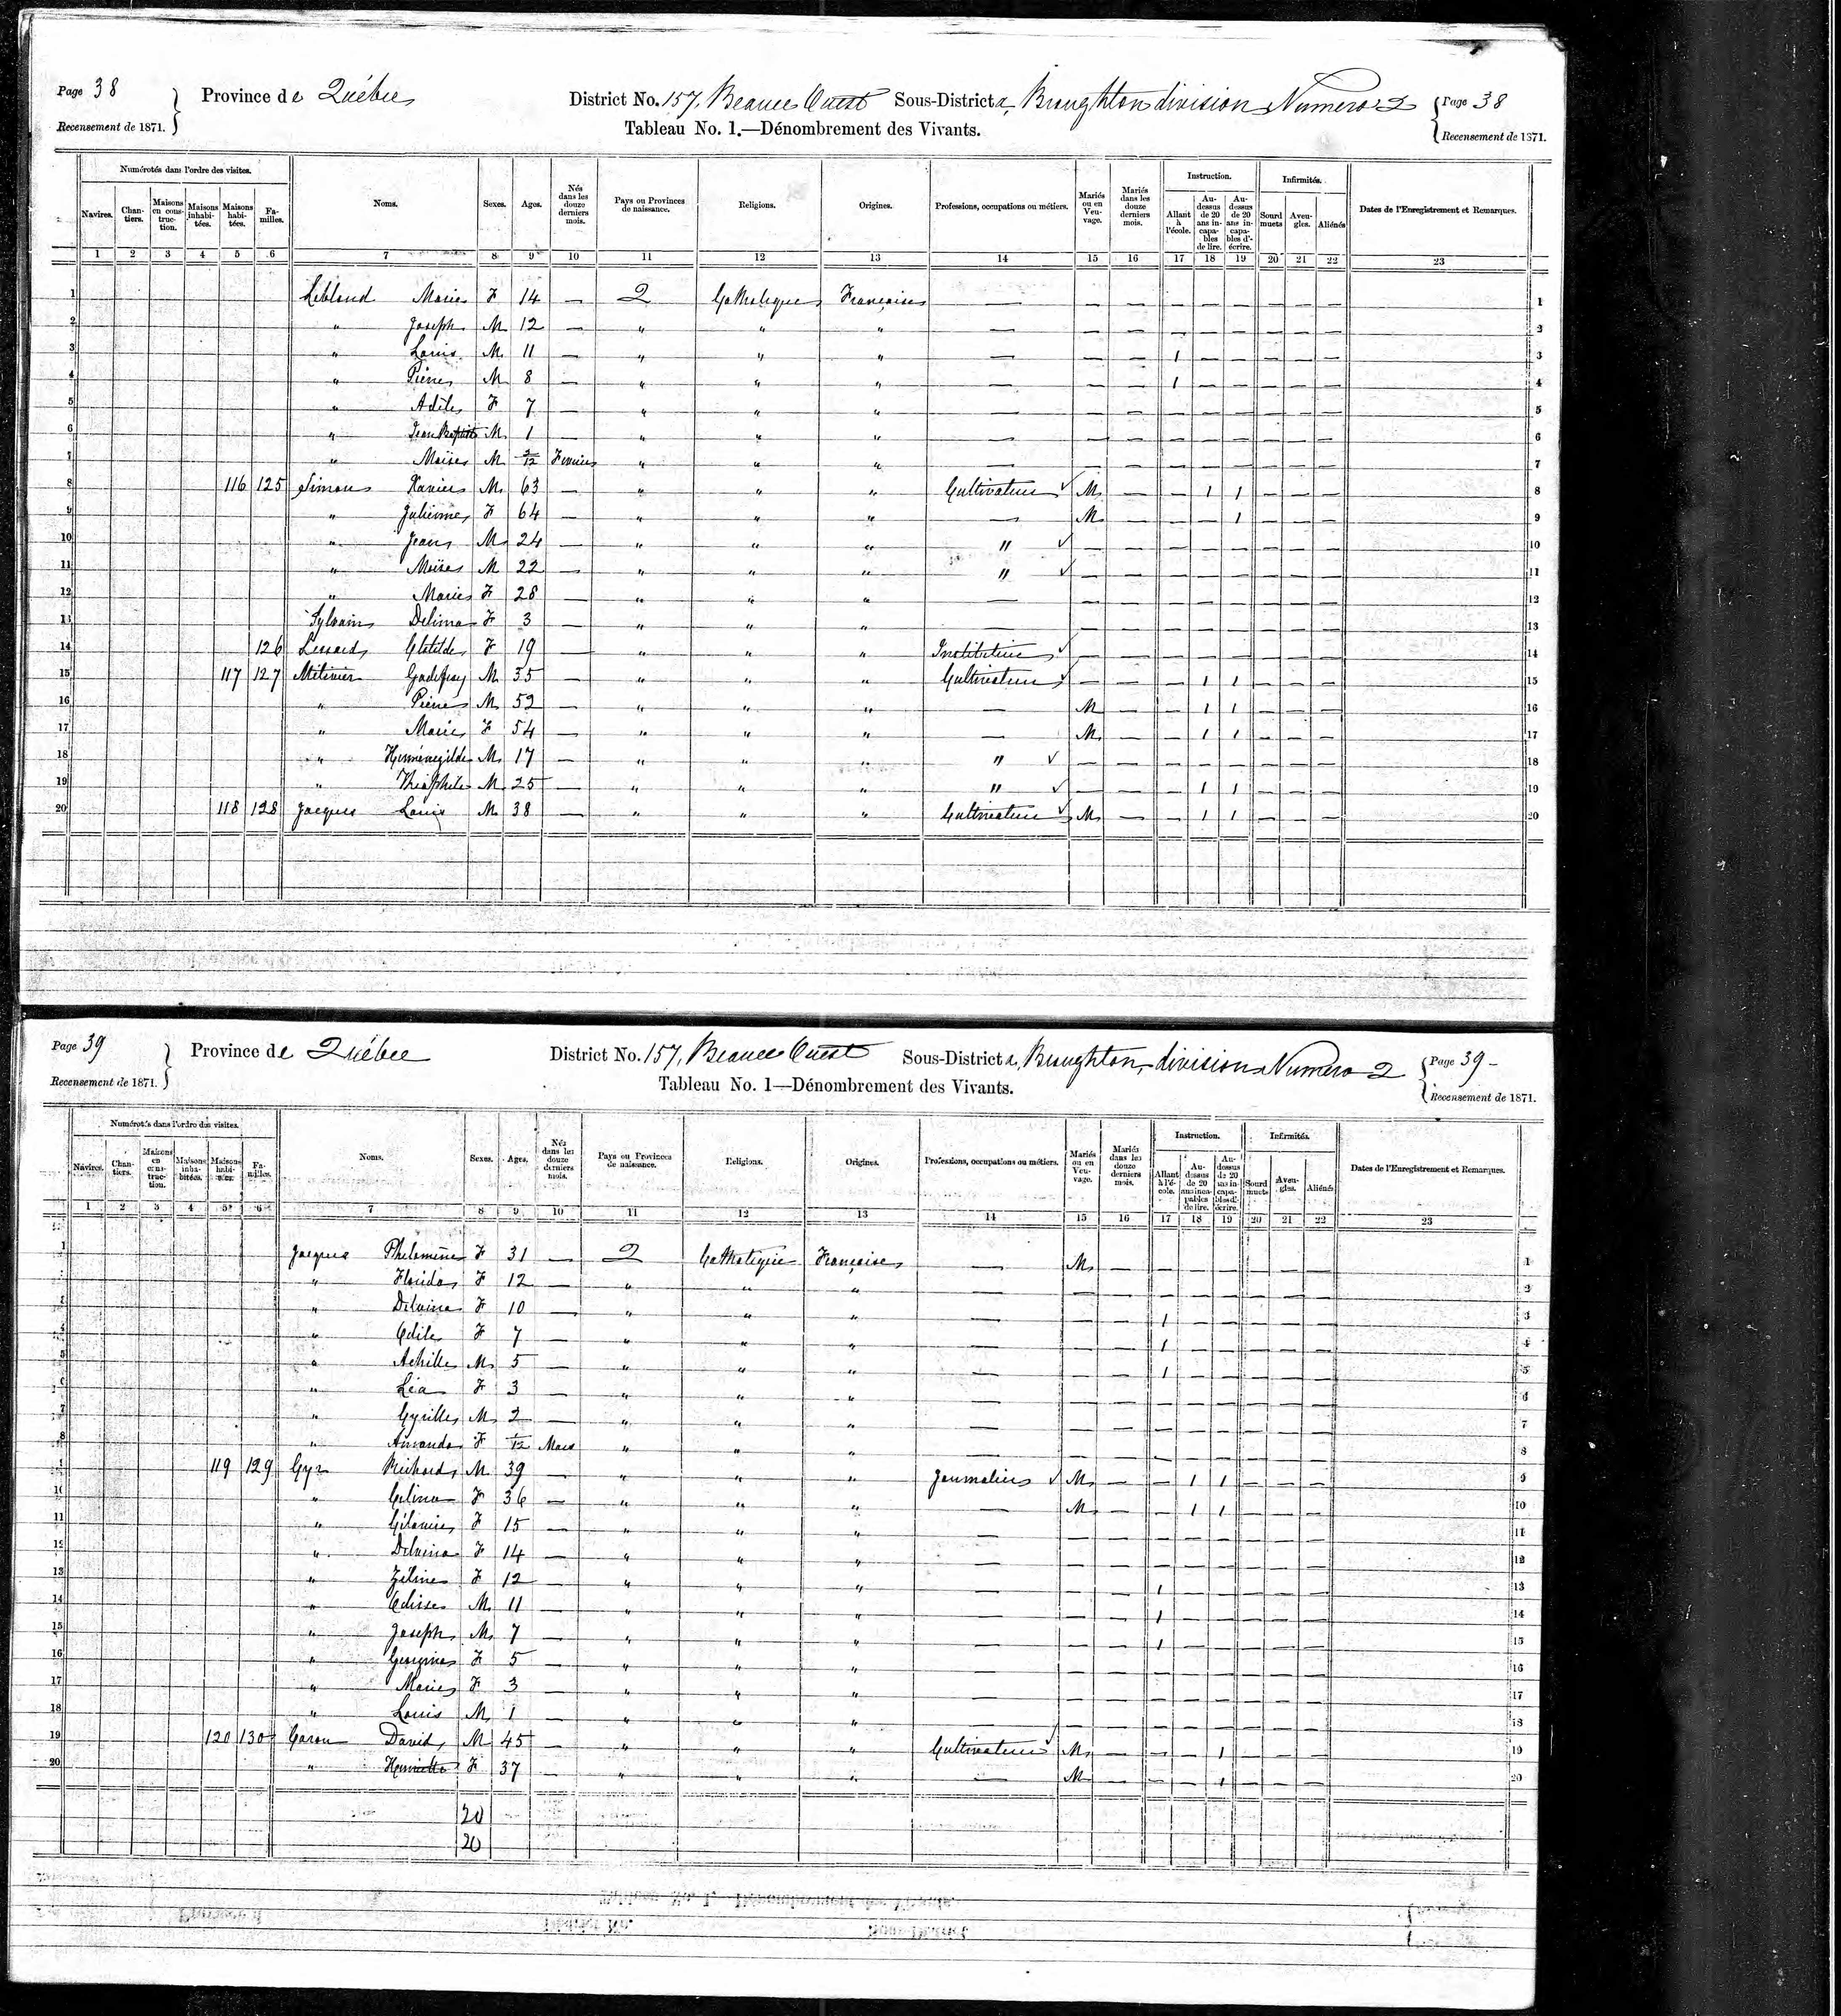 Page 38 Province de Québec District No. 157, Beauce Ouest Sous-District a, Broughton division Numero 2 Page 38
Recensement de 1871. Tableau No. 1.—Dénombrement des Vivants. Recensement de 1871.
Numérotés dans l'ordre des visites. Instruction. Infirmités.
Navires. Chantiers. Maisons en construction. Maisons inhabitées. Maisons habitées. Familles. Noms. Sexes. Ages. Nés dans les douze derniers mois. Pays ou Provinces de naissance. Religions. Origines. Professions, occupations ou métiers. Mariés ou en Veuvage. Mariés dans les douze derniers mois. Allant à l'école. Au-dessus de 20 ans incapables de lire. Au-dessus de 20 ans incapables d'écrire. Sourd muets Aveugles. Aliénés Dates de l'Enregistrement et Remarques.
1 2 3 4 5 6 7 8 9 10 11 12 13 14 15 16 17 18 19 20 21 22 23
1 Leblond Marie F 14 — 2 Catholique Française — — — — — — — — — 1
2 " Joseph M 12 — " " " — — — — — — — — — 2
3 " Louis M 11 — " " " — — — 1 — — — — — 3
4 " Pierre M 8 — " " " — — — 1 — — — — — 4
5 " Adèle F 7 — " " " — — — — — — — — — 5
6 " Jean Baptiste M 1 — " " " — — — — — — — — — 6
7 " Moïse M 2/12 Fevrier " " " — — — — — — — — — 7
8 116 125 Simons Xavier M 63 — " " " Cultivateur ✓ M — — 1 1 — — — 8
9 " Julienne F 64 — " " " — M — — — 1 — — — 9
10 " Jean M 24 — " " " " ✓ — — — — — — — — 10
11 " Moïse M 22 — " " " " ✓ — — — — — — — — 11
12 " Marie F 28 — " " " — — — — — — — — — 12
13 Sylvain Delima F 3 — " " " — — — — — — — — — 13
14 126 Lessard Clotilde F 19 — " " " Institutrice ✓ — — — — — — — — 14
15 117 127 Métivier Godefroy M 35 — " " " Cultivateur ✓ — — — 1 1 — — — 15
16 " Pierre M 52 — " " " — M — — 1 1 — — — 16
17 " Marie F 54 — " " " — M — — 1 1 — — — 17
18 " Herménégilde M 17 — " " " " ✓ — — — — — — — — 18
19 " Théophile M 25 — " " " " ✓ — — — 1 1 — — — 19
20 118 128 Jacques Louis M 38 — " " " Cultivateur ✓ M — — 1 1 — — — 20
Page 39 Province de Québec District No. 157, Beauce Ouest Sous-District a, Broughton, division Numero 2 Page 39
Recensement de 1871. Tableau No. 1—Dénombrement des Vivants. Recensement de 1871.
Numérotés dans l'ordre des visites. Instruction. Infirmités.
Navires. Chantiers. Maisons en construction. Maisons inhabitées. Maisons habitées. Familles. Noms. Sexes. Ages. Nés dans les douze derniers mois. Pays ou Provinces de naissance. Religions. Origines. Professions, occupations ou métiers. Mariés ou en Veuvage. Mariés dans les douze derniers mois. Allant à l'école. Au-dessus de 20 ans incapables de lire. Au-dessus de 20 ans incapables d'écrire. Sourd muets Aveugles. Aliénés Dates de l'Enregistrement et Remarques.
1 2 3 4 5 6 7 8 9 10 11 12 13 14 15 16 17 18 19 20 21 22 23
1 Jacques Philomène F 31 — 2 Catholique Française — M — — — — — — — 1
2 " Florida F 12 — " " " — — — — — — — — — 2
3 " Delvina F 10 — " " " — — — 1 — — — — — 3
4 " Odile F 7 — " " " — — — 1 — — — — — 4
5 " Achille M 5 — " " " — — — 1 — — — — — 5
6 " Léa F 3 — " " " — — — — — — — — — 6
7 " Cyrille M 2 — " " " — — — — — — — — — 7
8 " Amanda F 1/12 Mars " " " — — — — — — — — — 8
9 119 129 Cyr Richard M 39 — " " " Journalier ✓ M — — 1 1 — — — 9
10 " Celina F 36 — " " " — M — — 1 1 — — — 10
11 " F 15 — " " " — — — — — — — — — 11
12 " Delvina F 14 — " " " — — — — — — — — — 12
13 " Zéline F 12 — " " " — — — 1 — — — — — 13
14 " M 11 — " " " — — — 1 — — — — — 14
15 " Joseph M 7 — " " " — — — 1 — — — — — 15
16 " Georgina F 5 — " " " — — — — — — — — — 16
17 " Marie F 3 — " " " — — — — — — — — — 17
18 " Louis M 1 — " " " — — — — — — — — — 18
19 120 130 Caron David M 45 — " " " Cultivateur ✓ M — — — 1 — — — 19
20 " Henriette F 37 — " " " — M — — — 1 — — — 20
20
20